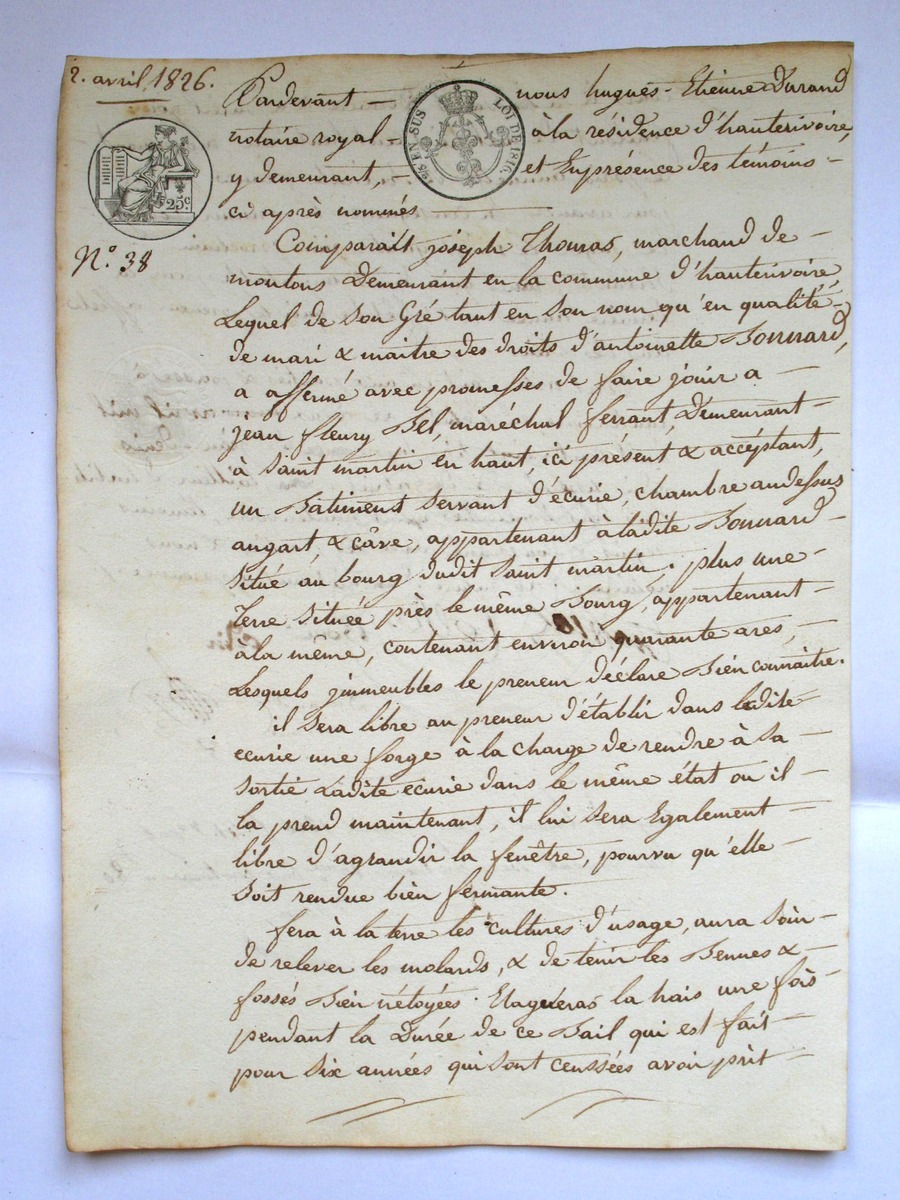 2. avril 1826.
Pardevant — nous hugues-Etienne Durand
notaire royal — à la résidence d'hauterivoire,
y demeurant, — et En présence des témoins —
ci après nommés
2/8 EN SUS
LOI DE 1816.
25c.
N.° 38
Comparait joseph Thomas, marchand de —
moutons Demeurant en la commune d'hauterivoire
Lequel de Son Gré tant en Son nom qu'en qualité
de mari & maitre des droits d'antoinette Bonnard,
a affermé avec promesses de faire jouir a —
jean fleury Bel, maréchal ferrant, Demeurant —
à saint martin en haut, ici présent & accéptant,
un Bâtiment Servant d'écurie, chambre audessus
angart, & câve, appartenant à ladite Bonnard —
Situé au bourg dudit saint martin. plus une —
Terre Située près le même Bourg, appartenant —
à la même, contenant environ quarante ares, —
Lesquels jmmeubles le preneur Déclare Bien connaitre.
il Sera libre au preneur d'établir dans ladite
ecurie une forge à la charge de rendre à Sa
Sortie Ladite ecurie dans le même état ou il —
la prend maintenant, il lui Sera Egalement —
libre d'agrandir la fenêtre, pourvu qu'elle —
Soit rendue bien fermante.
fera à la terre les cultures d'usage, aura Soin —
de relever les molards, & de tenir les Bennes & —
fossés Bien nétoyées. Elagueras la hais une fois
pendant la Durée de ce Bail qui est fait —
pour Six années qui sont censsées avoir prit —